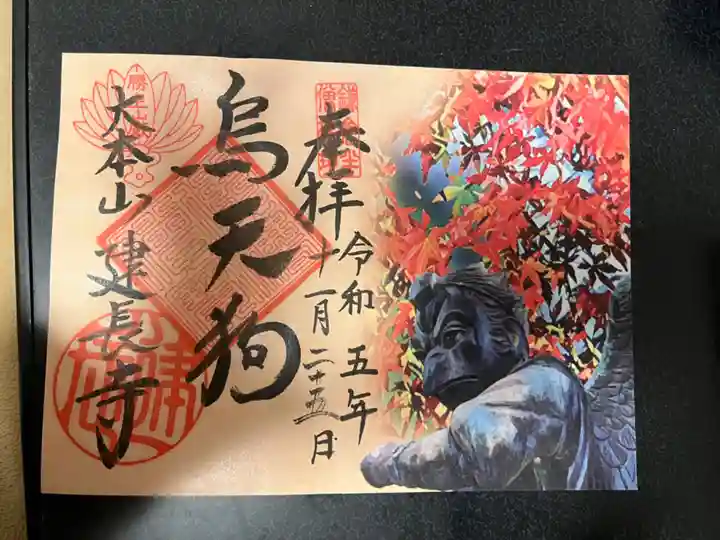 奉拝
令和五年
十一月二十五日
烏天狗
大本山 建長寺